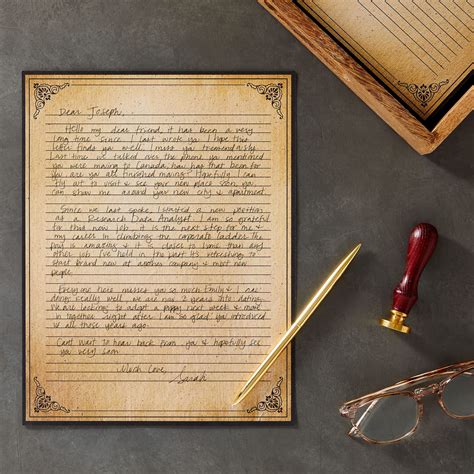 Dear Joseph,
Hello my dear friend, it has been a very
long time since I last wrote you. I hope this
letter finds you well. I miss you tremendously.
Last time we talked over the phone you mentioned
you were moving to Canada, how has that been for
you are you all finished moving? Hopefully I can
fly out to visit & see your new place soon, you
can show me around your new city & apartment.
Since we last spoke, I started a new position
as a Research Data Analyst. I am so grateful
for this new job, it is the next step for me &
my career in climbing the corporate ladder. The
pay is amazing & it is closer to home than any
other job I've held in the past. It's refreshing to
start brand new at another company & meet new
people.
Everyone here misses you so much. Emily & I are
doing really well, we are now 2 years into dating.
We are looking to adopt a puppy next week & move
in together right after. I am so glad you introduced
us all those years ago.
Can't wait to hear back from you & hopefully see
you very soon.
Much Love,
Sarah